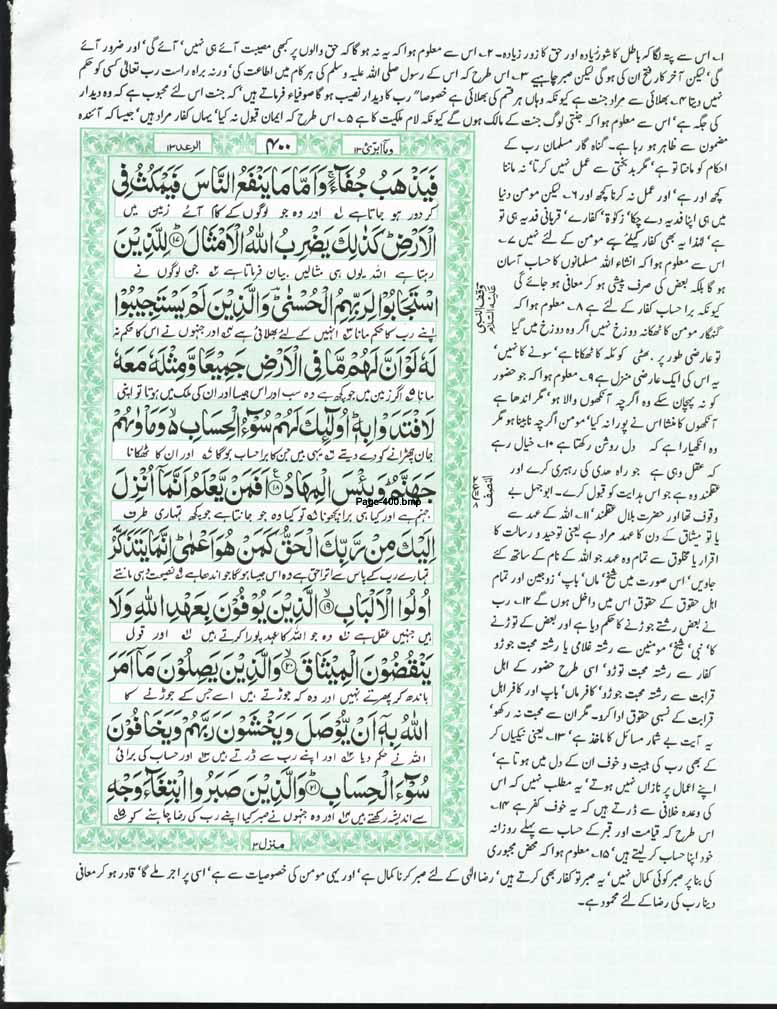 ۱؎ اس سے پتہ لگا کہ باطل کا شور زیادہ اور حق کا زور زیادہ۔ ۲؎ اس سے معلوم ہوا کہ یہ نہ ہو گا کہ حق والوں پر کبھی مصیبت آئے ہی نہیں' آئے گی' اور ضرور آئے
گی' لیکن آخر کار فتح ان کی ہو گی لیکن صبر چاہیے ۳؎ اس طرح کہ اس کے رسول صلی اللہ علیہ وسلم کی ہر کام میں اطاعت کی' ورنہ براہ راست رب تعالیٰ کسی کو حکم
نہیں دیتا ۴؎ بھلائی سے مراد جنت ہے کیونکہ وہاں ہر قسم کی بھلائی ہے خصوصاً" رب کا دیدار نصیب ہو گا صوفیاء فرماتے ہیں' کہ جنت اس لئے محبوب ہے کہ وہ دیدار
کی جگہ ہے' اس سے معلوم ہوا کہ جنتی لوگ جنت کے مالک ہوں گے کیونکہ لام ملکیت کا ہے ۵؎ اس طرح کہ ایمان قبول نہ کیا' یہاں کفار مراد ہیں' جیسا کہ آئندہ
مضمون سے ظاہر ہو رہا ہے۔ گناہ گار مسلمان رب کے
احکام کو مانتا تو ہے' مگر بدبختی سے عمل نہیں کرتا' نہ ماننا
کچھ اور ہے' اور عمل نہ کرنا کچھ اور ۶؎ لیکن مومن دنیا
میں ہی اپنا فدیہ دے چکا' زکوٰۃ' کفارے' قربانی فدیہ ہی تو
ہے' لہٰذا یہ بھی کفار کیلئے ہے مومن کے لئے نہیں ۷؎
اس سے معلوم ہوا کہ انشاء اللہ مسلمانوں کا حساب آسان
ہو گا بلکہ بعض کی صرف پیشی ہو کر معافی ہو جائے گی
کیونکہ برا حساب کفار کے لئے ہے ۸؎ معلوم ہوا کہ
گنہگار مومن کا ٹھکانہ دوزخ نہیں اگر وہ دوزخ میں گیا
تو عارضی طور پر۔ بھٹی کوئلہ کا ٹھکانا ہے' سونے کا نہیں'
یہ اس کی ایک عارضی منزل ہے ۹؎ معلوم ہوا کہ جو حضور
کو نہ پہچان سکے وہ اگرچہ آنکھوں والا ہو' مگر اندھا ہے
آنکھوں کا منشا اس نے پورا نہ کیا' مومن اگرچہ نابینا ہو مگر
وہ انکھیارا ہے کہ دل روشن رکھتا ہے ۱۰؎ خیال رہے
کہ عقل وہی ہے جو راہ ھدی کی رہبری کرے اور
عقلمند وہ ہے جو اس ہدایت کو قبول کرے۔ ابوجہل بے
وقوف تھا اور حضرت بلال عقلمند' ۱۱؎ اللہ کے عہد سے
یا تو میثاق کے دن کا عہد مراد ہے یعنی توحید و رسالت کا
اقرار یا مخلوق سے تمام وہ عہد جو اللہ کے نام کے ساتھ کئے
جاویں' اس صورت میں شیخ' ماں' باپ' زوجین اور تمام
اہل حقوق کے حقوق اس میں داخل ہوں گے ۱۲؎ رب
نے بعض رشتے جوڑنے کا حکم دیا ہے اور بعض کے توڑنے
کا' نبی' شیخ' مومنین سے رشتہ غلامی یا رشتہ محبت جوڑو
کفار سے رشتہ محبت توڑو' اسی طرح حضور کے اہل
قرابت سے رشتہ محبت جوڑو' کافر ماں' باپ اور کافر اہل
قرابت کے نسبی حقوق ادا کرو۔ مگر ان سے محبت نہ رکھو'
یہ آیت بے شمار مسائل کا ماخذ ہے' ۱۳؎ یعنی نیکیاں کر
کے بھی رب کی ہیبت و خوف ان کے دل میں ہوتا ہے'
اپنے اعمال پر نازاں نہیں ہوتے' یہ مطلب نہیں کہ اس
کی وعدہ خلافی سے ڈرتے ہیں کہ یہ خوف کفر ہے ۱۴؎
اس طرح کہ قیامت اور قبر کے حساب سے پہلے روزانہ
خود اپنا حساب کر لیتے ہیں' ۱۵؎ معلوم ہوا کہ محض مجبوری
کی بنا پر صبر کوئی کمال نہیں' یہ صبر تو کفار بھی کرتے ہیں' رضا الٰہی کے لئے صبر کرنا کمال ہے' اور یہی مومن کی خصوصیات سے ہے' اسی پر اجر ملے گا' قادر ہو کر معافی
دینا رب کی رضا کے لئے محمود ہے۔
وما ابرئ ۱۳
۴۰۰
الرعد ۱۳
فَيَذْهَبُ جُفَآءً ۚ وَاَمَّا مَا يَنْفَعُ النَّاسَ فَيَمْكُثُ فِي
کر دور ہو جاتا ہے اور وہ جو لوگوں کے کام آئے زمین میں
الْاَرْضِ ؕ كَذٰلِكَ يَضْرِبُ اللّٰهُ الْاَمْثَالَ ؕ‏ ۱۷ لِلَّذِيْنَ
رہتا ہے اللہ یوں ہی مثالیں بیان فرماتا ہے جن لوگوں نے
اسْتَجَابُوْا لِرَبِّهِمُ الْحُسْنٰى ؔؕ وَالَّذِيْنَ لَمْ يَسْتَجِيْبُوْا
اپنے رب کا حکم مانا انہیں کے لئے بھلائی ہے اور جنہوں نے اس کا حکم نہ
لَهٗ لَوْ اَنَّ لَهُمْ مَّا فِي الْاَرْضِ جَمِيْعًا وَّمِثْلَهٗ مَعَهٗ
مانا اگر زمین میں جو کچھ ہے وہ سب اور اس جیسا اور ان کی ملک میں ہوتا تو اپنی
لَافْتَدَوْا بِهٖ ؕ اُولٰٓئِكَ لَهُمْ سُوْٓءُ الْحِسَابِ ۙ وَمَاْوٰىهُمْ
جان چھڑانے کو دے دیتے یہی ہیں جن کا برا حساب ہوگا اور ان کا ٹھکانا
جَهَنَّمُ ؕ وَبِئْسَ الْمِهَادُ ۱۸ اَفَمَنْ يَّعْلَمُ اَنَّمَاۤ اُنْزِلَ
Page-400.bmp
جہنم ہے اور کیا ہی برا بچھونا تو کیا وہ جو جانتا ہے جو کچھ تمہاری طرف
اِلَيْكَ مِنْ رَّبِّكَ الْحَقُّ كَمَنْ هُوَ اَعْمٰى ؕ اِنَّمَا يَتَذَكَّرُ
تمہارے رب کے پاس سے اترا حق ہے وہ اس جیسا ہوگا جو اندھا ہے نصیحت وہی مانتے
اُولُوا الْاَلْبَابِ ۱۹ الَّذِيْنَ يُوْفُوْنَ بِعَهْدِ اللّٰهِ وَلَا
ہیں جنہیں عقل ہے وہ جو اللہ کا عہد پورا کرتے ہیں اور قول
يَنْقُضُوْنَ الْمِيْثَاقَ ۲۰ وَالَّذِيْنَ يَصِلُوْنَ مَاۤ اَمَرَ
باندھ کر پھرتے نہیں اور وہ کہ جوڑتے ہیں اسے جس کے جوڑنے کا
اللّٰهُ بِهٖۤ اَنْ يُّوْصَلَ وَيَخْشَوْنَ رَبَّهُمْ وَيَخَافُوْنَ
اللہ نے حکم دیا اور اپنے رب سے ڈرتے ہیں اور حساب کی برائی
سُوْٓءَ الْحِسَابِ ۲۱ وَالَّذِيْنَ صَبَرُوا ابْتِغَآءَ وَجْهِ
سے اندیشہ رکھتے ہیں اور وہ جنہوں نے صبر کیا اپنے رب کی رضا چاہنے کو
منزل ۳
وقف النبی علیہ السلام
النصف